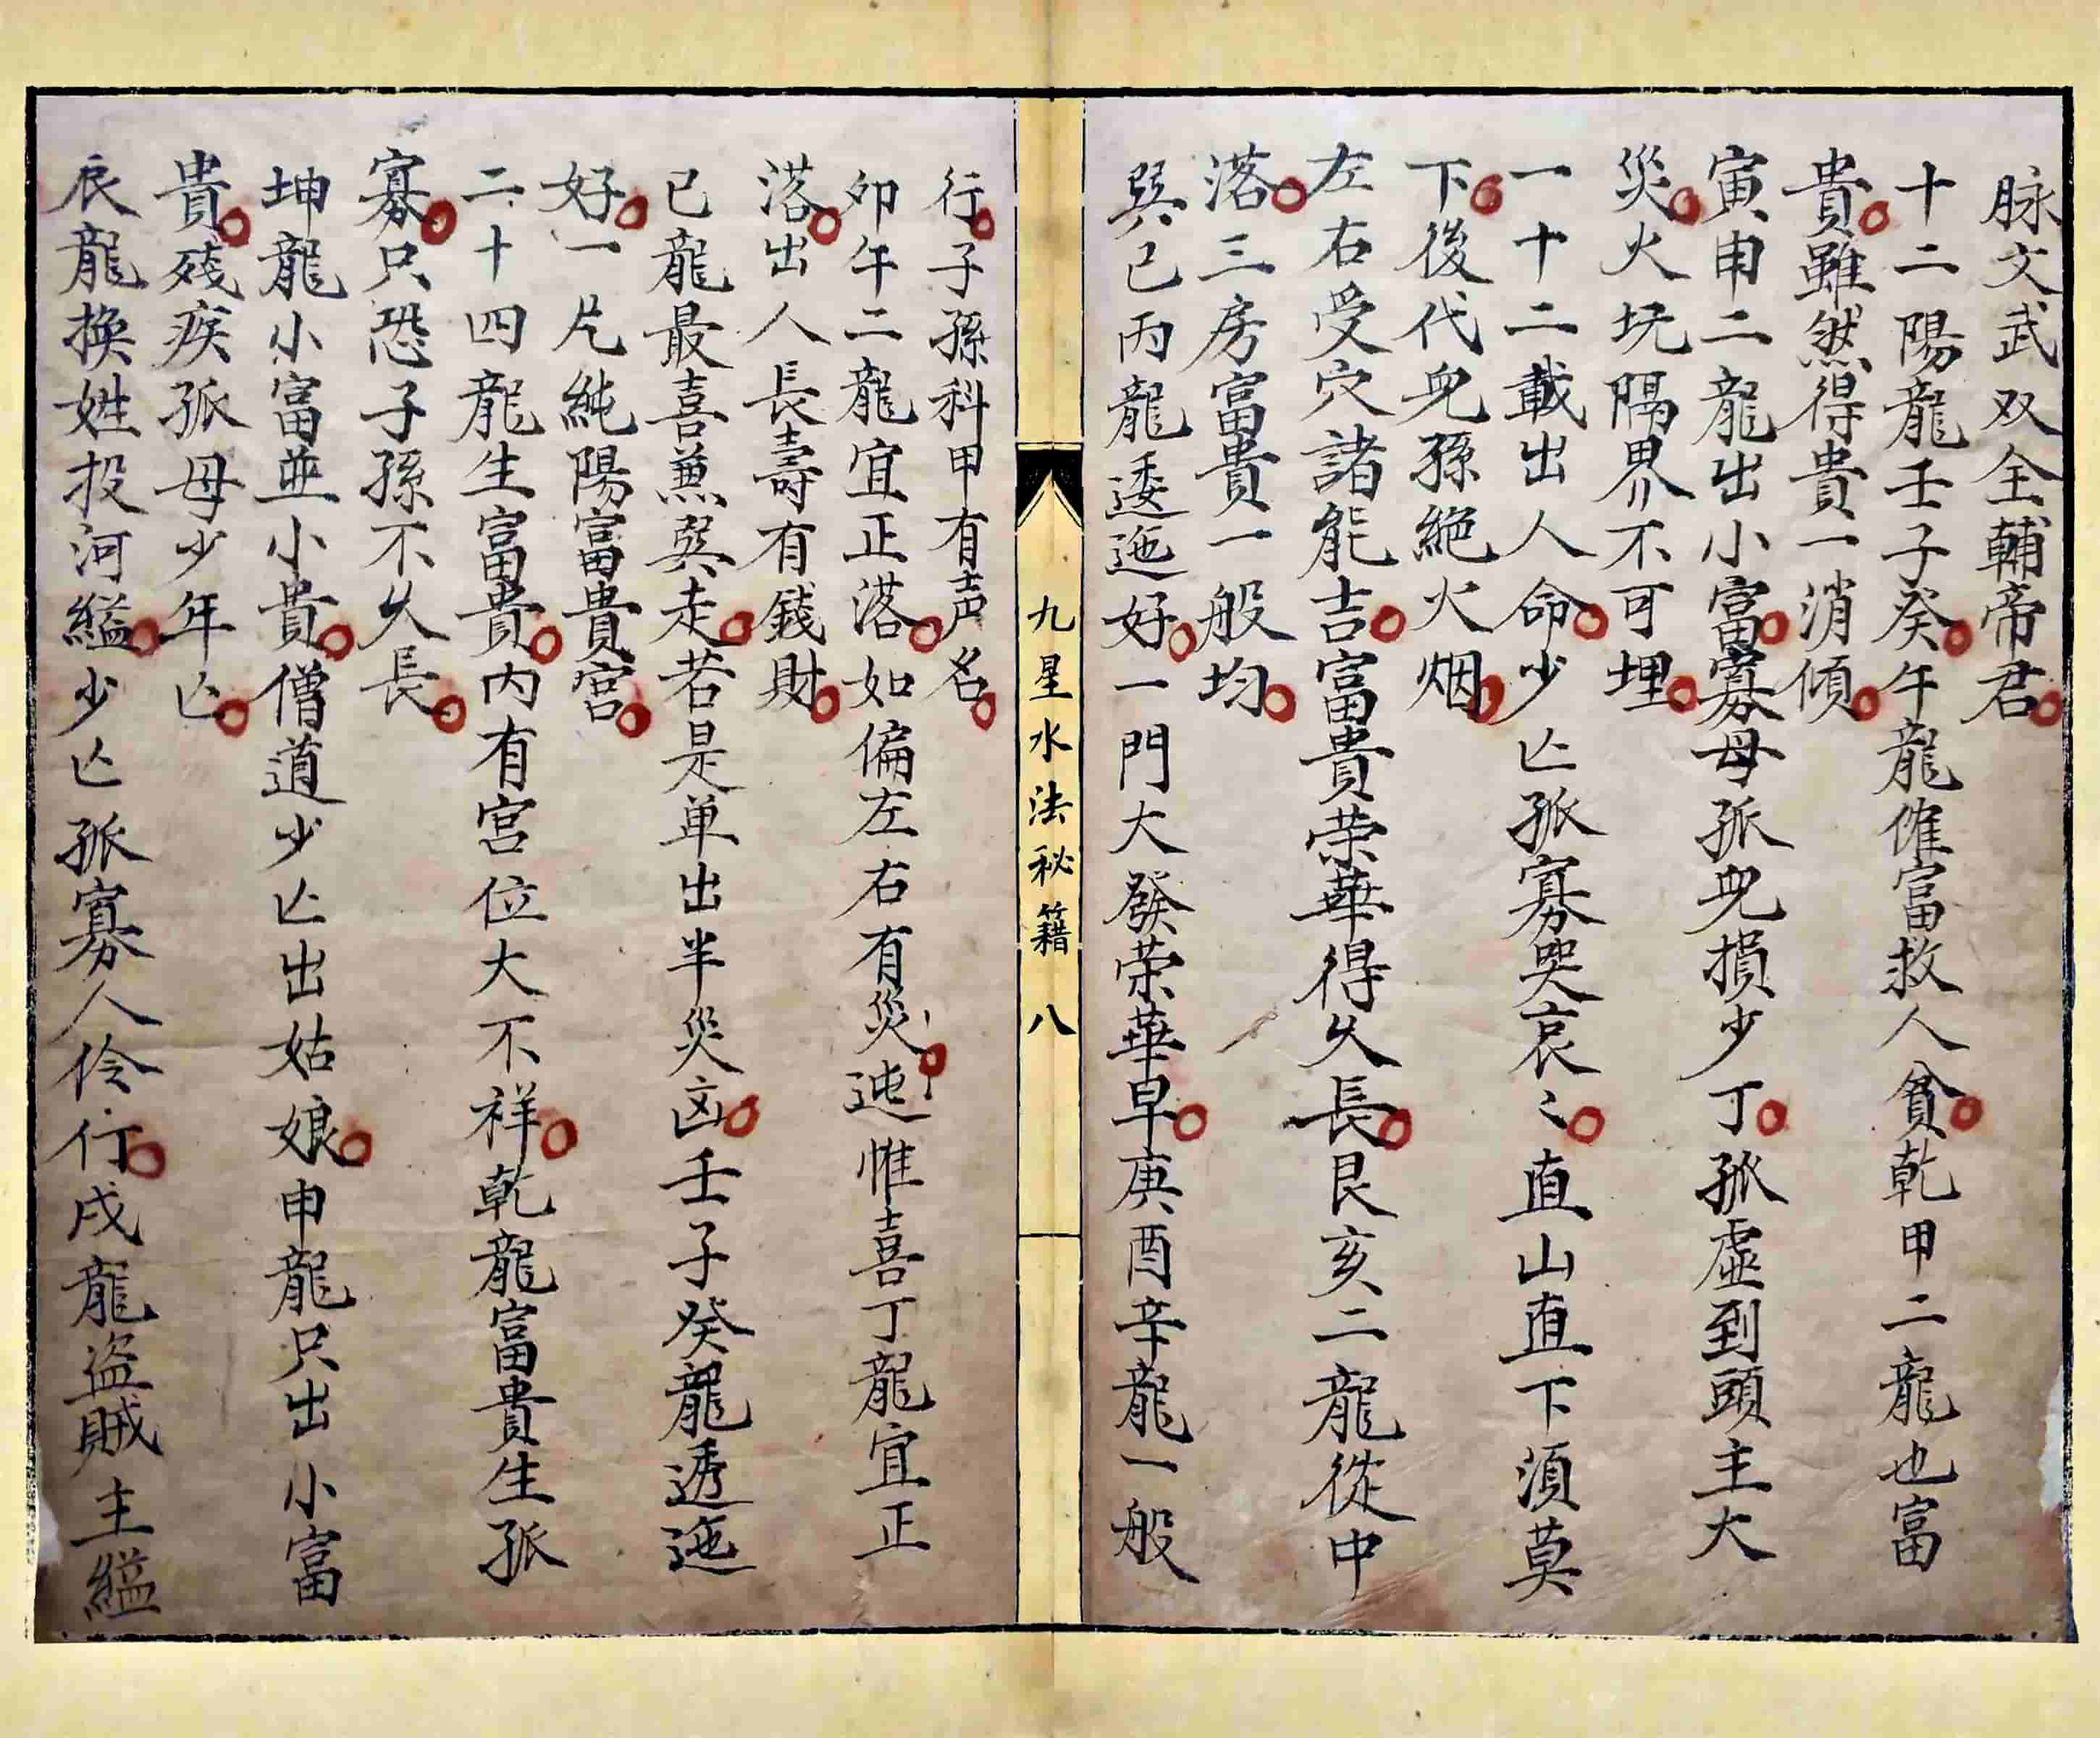 脉文武双全輔帝君
十二陽龍壬子癸午龍催富救人貧乾甲二龍也富
貴雖然得貴一消傾
寅申二龍出小富寡母孤児損少丁孤虛到頭主大
災火坑隔界不可埋
一十二載出人命少亡孤寡哭哀〻直山直下須莫
下後代児孫絶火烟
左右受穴諸龍吉富貴荣華得久長艮亥二龍從中
落三房富貴一般均
巽巳丙龍逶迤好一門大發荣華早庚酉辛龍一般
九星水法秘籍 八
行子孫科甲有声名
卯午二龍宜正落如偏左右有災迍惟喜丁龍宜正
落出人長壽有錢財
巳龍最喜兼巽走若是单出半災凶壬子癸龍透迤
好一片純陽富貴宮
二十四龍生富貴内有宫位大不祥乾龍富貴生孤
寡只恐子孫不久長
坤龍小富並小貴僧道少亡出姑娘申龍只出小富
貴殘疾孤母少年亡
辰龍換姓投河縊少亡孤寡人伶仃戌龍盗賊主縊